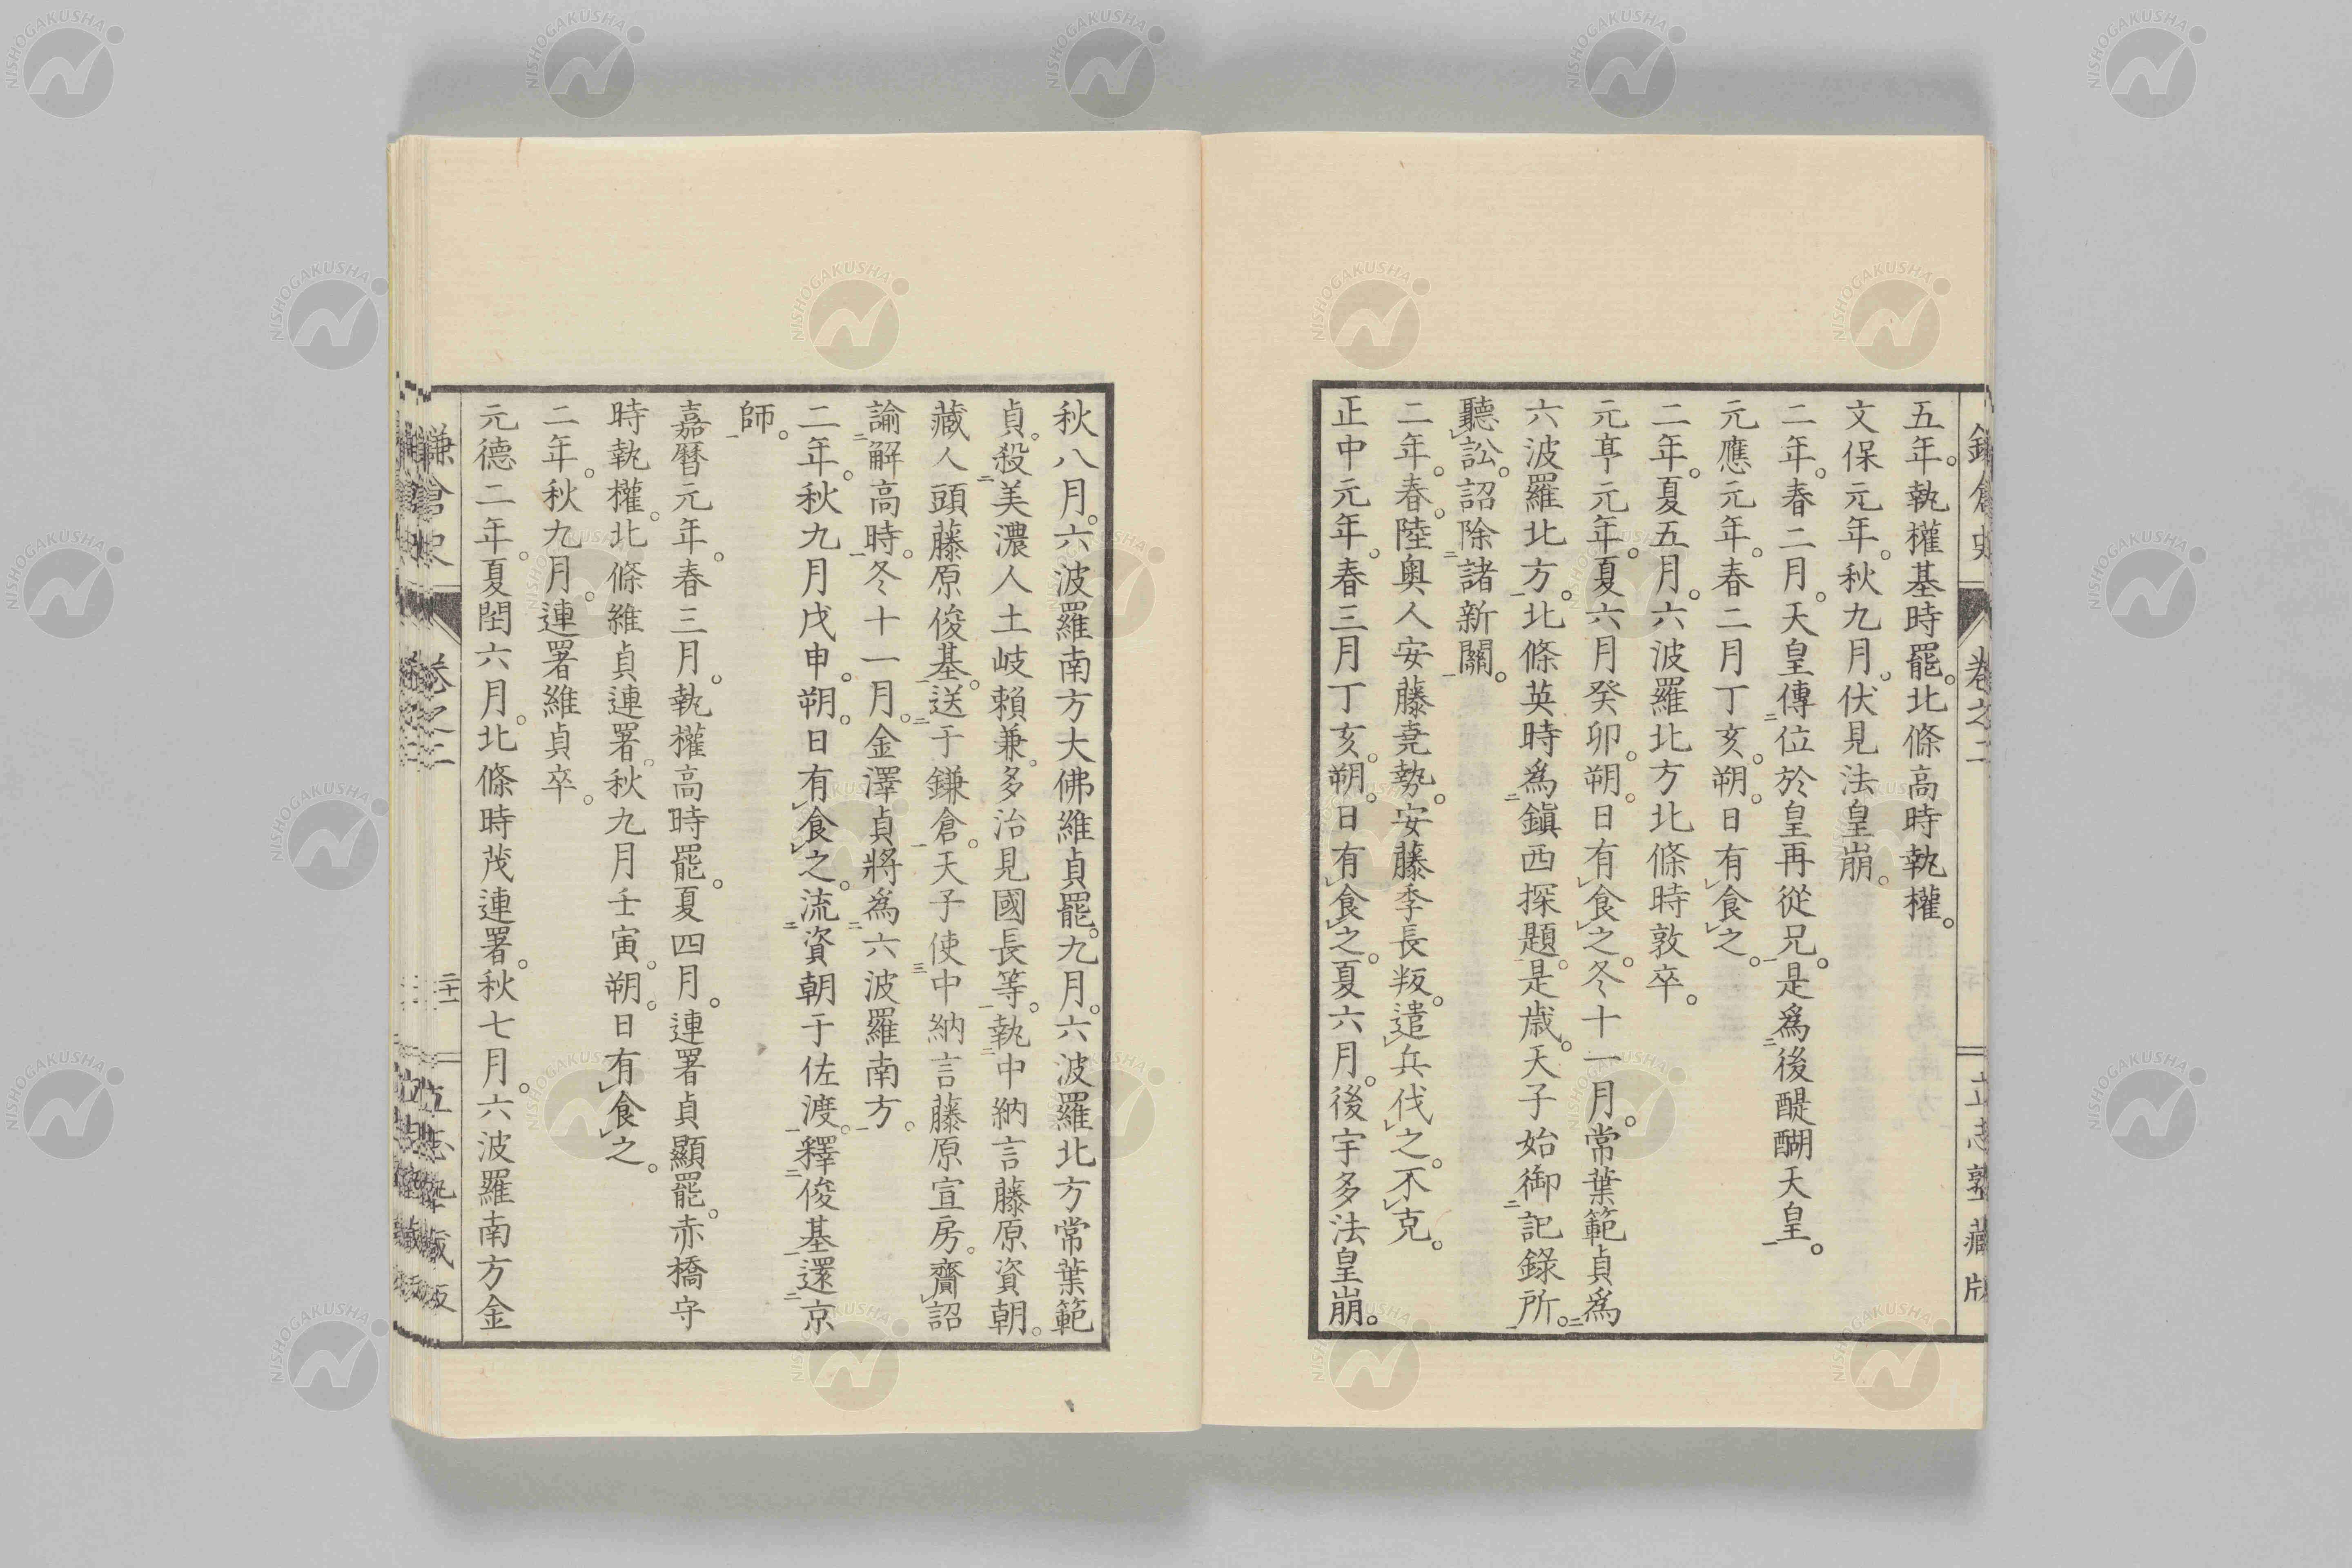 鎌倉史 卷之二 立志塾藏版
五年。執權基時罷。北條高時執權。
文保元年。秋九月。伏見法皇崩。
二年。春二月。天皇傳位於皇再從兄。是爲後醍醐天皇。
元應元年。春二月丁亥。朔。日有食之。
二年。夏五月。六波羅北方北條時敦卒。
元亨元年。夏六月癸卯。朔。日有食之。冬十一月。常葉範貞爲
六波羅北方。北條英時爲鎭西探題。是歳。天子始御記錄所。
聽訟。詔除諸新關。
二年。春。陸奧人安藤堯勢。安藤季長叛。遣兵伐之。不克。
正中元年。春三月丁亥。朔。日有食之。夏六月。後宇多法皇崩。
秋八月。六波羅南方大佛維貞罷。九月。六波羅北方常葉範
貞。殺美濃人土岐賴兼。多治見國長等。執中納言藤原資朝。
藏人頭藤原俊基。送于鎌倉。天子使中納言藤原宣房。齎詔
諭解高時。冬十一月。金澤貞將爲六波羅南方。
二年。秋九月戊申。朔。日有食之。流資朝于佐渡。釋俊基還京
師。
嘉曆元年。春三月。執權高時罷。夏四月。連署貞顯罷。赤橋守
時執權。北條維貞連署。秋九月壬寅。朔。日有食之。
二年。秋九月。連署維貞卒。
元德二年。夏閏六月。北條時茂連署。秋七月。六波羅南方金
鎌倉史 卷之二 二十一 立志塾藏版
NISHOGAKUSHA